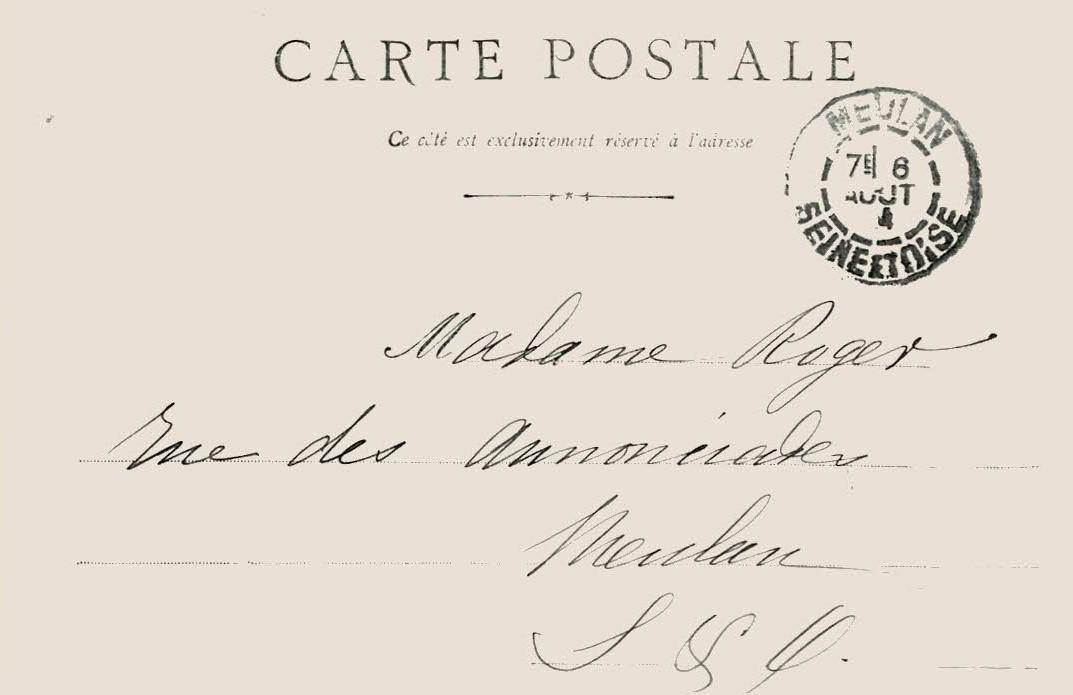 CARTE POSTALE
Ce côté est exclusivement réservé à l'adresse
MEULAN
7E 6
AOUT
4
SEINE ET OISE
Madame Roger
rue des Annonciades
Meulan
S & O.